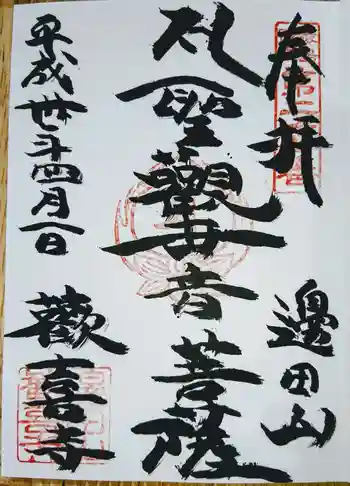 奉拝
邊田山
聖觀世音菩薩
平成卅年四月一日
歡喜寺